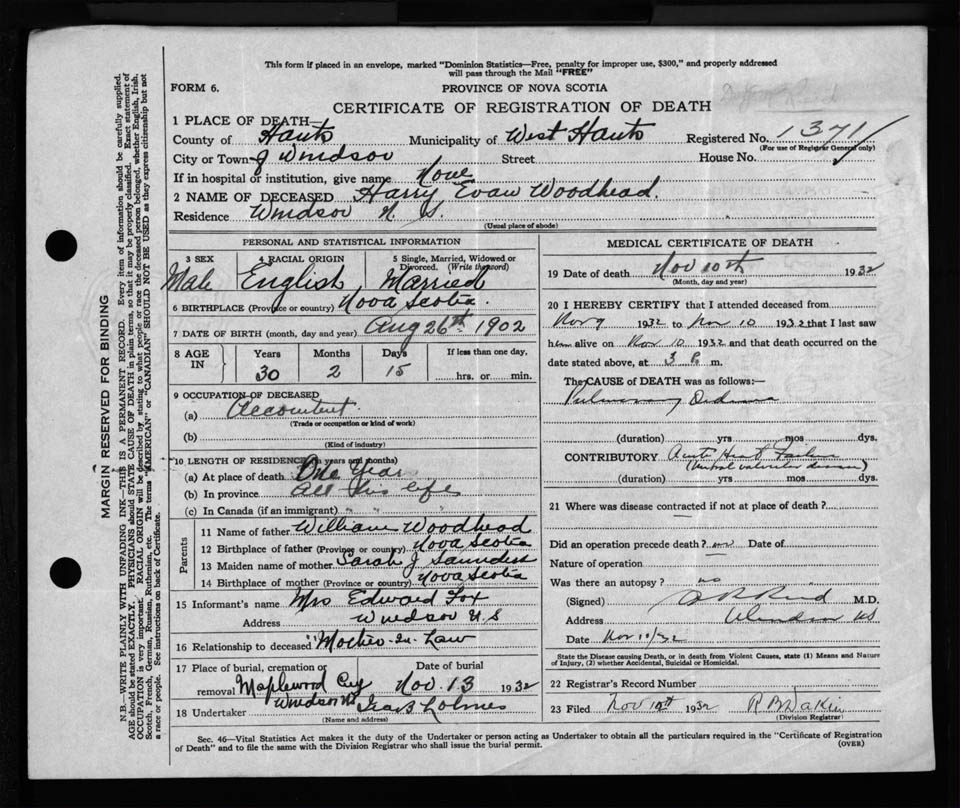 This form if placed in an envelope, marked "Dominion Statistics—Free, penalty for improper use, $300," and properly addressed
will pass through the Mail "FREE"
FORM 6.
PROVINCE OF NOVA SCOTIA
CERTIFICATE OF REGISTRATION OF DEATH
1 PLACE OF DEATH—
County of Hants Municipality of West Hants Registered No. 1371
(For use of Registrar General only)
City or Town of Windsor Street House No.
If in hospital or institution, give name None
2 NAME OF DECEASED Harry Evan Woodhead.
Residence Windsor N. S.
(Usual place of abode)
PERSONAL AND STATISTICAL INFORMATION
3 SEX 4 RACIAL ORIGIN 5 Single, Married, Widowed or
Divorced. (Write the word)
Male English Married
6 BIRTHPLACE (Province or country) Nova Scotia.
7 DATE OF BIRTH (month, day and year) Aug 26th 1902
8 AGE IN Years Months Days If less than one day,
30 2 15 hrs. or min.
9 OCCUPATION OF DECEASED
(a) Accountent.
(Trade or occupation or kind of work)
(b)
(Kind of industry)
10 LENGTH OF RESIDENCE (in years and months)
(a) At place of death One Year
(b) In province All his life
(c) In Canada (if an immigrant) " "
Parents
11 Name of father William Woodhead
12 Birthplace of father (Province or country) Nova Scotia
13 Maiden name of mother Sarah J Saunders
14 Birthplace of mother (Province or country) Nova Scotia
15 Informant's name Mrs Edward Fox
Address Windsor N.S
16 Relationship to deceased Mother-In-Law
17 Place of burial, cremation or Date of burial
removal Maplewood Cey Nov. 13 1932
Windsor NS
18 Undertaker Holmes
(Name and address)
MEDICAL CERTIFICATE OF DEATH
19 Date of death Nov 10th 1932
(Month, day and year)
20 I HEREBY CERTIFY that I attended deceased from
Nov 9 1932 to Nov 10 1932 that I last saw
him alive on Nov. 10 1932 and that death occurred on the
date stated above, at 3 P. m.
The CAUSE OF DEATH was as follows:—
Pulmonary Oedema
(duration) yrs mos dys.
CONTRIBUTORY Acute Heart Failure
(valvular disease)
(duration) yrs. mos. dys.
21 Where was disease contracted if not at place of death?
Did an operation precede death? no Date of
Nature of operation
Was there an autopsy? no
(Signed) Reid M.D.
Address Windsor NS
Date Nov 10/32
State the Disease causing Death, or in death from Violent Causes, state (1) Means and Nature
of Injury, (2) whether Accidental, Suicidal or Homicidal.
22 Registrar's Record Number
23 Filed Nov 10th 1932 R B Dakin
(Division Registrar)
Sec. 46—Vital Statistics Act makes it the duty of the Undertaker or person acting as Undertaker to obtain all the particulars required in the "Certificate of Registration
of Death" and to file the same with the Division Registrar who shall issue the burial permit.
(OVER)
MARGIN RESERVED FOR BINDING
N.B.—WRITE PLAINLY WITH UNFADING INK—THIS IS A PERMANENT RECORD. Every item of information should be carefully supplied.
AGE should be stated EXACTLY. PHYSICIANS should STATE CAUSE OF DEATH in plain terms, so that it may be properly classified. Exact statement of
OCCUPATION is very important. RACIAL ORIGIN will be described by stating to what people or race the deceased person belonged, whether English, Irish,
Scotch, French, German, Russian, Ruthenian, etc. The terms "AMERICAN" or "CANADIAN" SHOULD NOT BE USED as they express citizenship but not
a race or people. See instructions on back of Certificate.